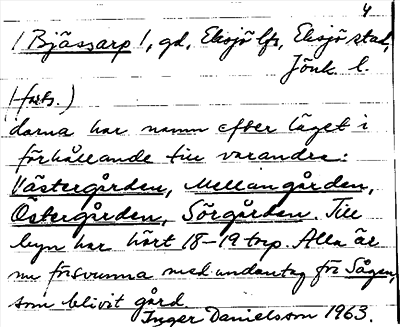 4
/ Bjässarp /, gd, Eksjö lfs, Eksjö stad,
Jönk. l.
(forts.)
darna har namn efter läget i
förhållande till varandra:
Västergården, Mellangården,
Östergården, Sörgården. Till
byn har hört 18-19 torp. Alla är
nu försvunna med undantag för Sågen,
som blivit gård
Inger Danielsson 1963.